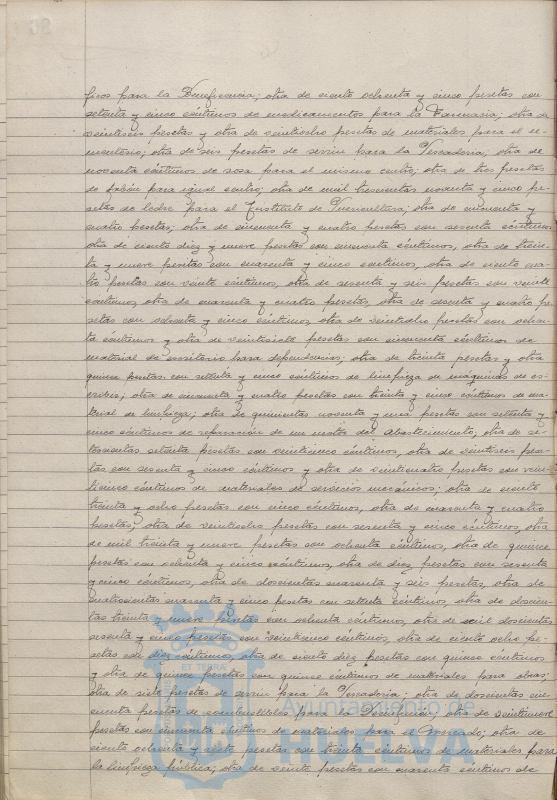 ficos para la Beneficencia; otra de ciento ochenta y cinco pesetas con
setenta y cinco céntimos de medicamentos para la Farmacia; otra de
veintiseis pesetas y otra de veintiocho pesetas de materiales para el ce-
menterio; otra de seis pesetas de serrin para la Pescadería; otra de
noventa céntimos de sosa para el mismo centro; otra de tres pesetas
de jabón para igual centro; otra de mil trescientas noventa y cinco pe-
setas de leche para el Instituto de Puericultura; otra de cincuenta y
cuatro pesetas; otra de cincuenta y cuatro pesetas con sesenta céntimos
otra de ciento diez y nueve pesetas con cincuenta céntimos, otra de trein-
ta y nueve pesetas con cuarenta y cinco céntimos, otra de ciento cua-
tro pesetas con veinte céntimos, otra de sesenta y seis pesetas con veinte
céntimos, otra de cuarenta y cuatro pesetas, otra de sesenta y cuatro pe-
setas con ochenta y cinco céntimos, otra de veintiocho pesetas con ochen-
ta céntimos y otra de veintisiete pesetas con cincuenta céntimos de
material de escritorio para dependencias; otra de treinta pesetas y otra
quince pesetas con setenta y cinco céntimos de limpieza de maquinas de es-
cribir; otra de cincuenta y cuatro pesetas con treinta y cinco céntimos de ma-
terial de limpieza; otra de quinientas noventa y una pesetas con setenta y
cinco céntimos de reparación de un del Abastecimiento; otra de se-
tecientas setenta pesetas con veinticinco céntimos, otra de veintiseis pese-
tas con sesenta y cinco céntimos y otra de veinticuatro pesetas con vein-
ticinco céntimos de materiales de servicios mecánicos; otra de ciento
treinta y ocho pesetas con cinco céntimos, otra de cuarenta y cuatro
pesetas, otra de veintiocho pesetas con sesenta y cinco céntimos, otra
de mil treinta y nueve pesetas con ochenta céntimos, otra de quince
pesetas con ochenta y cinco céntimos, otra de diez pesetas con sesenta
y cinco céntimos, otra de doscientas cuarenta y seis pesetas, otra de
cuatrocientas cuarenta y cinco pesetas con setenta céntimos, otra de doscien-
tas treinta y nueve pesetas con ochenta céntimos, otra de seis doscientas
sesenta y cinco pesetas con veinticinco céntimos, otra de ciento ocho pe-
setas con diez céntimos, otra de ciento diez pesetas con quince céntimos
y otra de quince pesetas con quince céntimos de materiales para obras;
otra de siete pesetas de serrin para la Pescadería; otra de doscientas cin-
cuenta pesetas de combustibles para la ; otra de veintinueve
pesetas con cincuenta céntimos de materiales para el Mercado; otra de
ciento ochenta y siete pesetas con treinta céntimos de materiales para
la limpieza pública; otra de veinte pesetas con cuarenta céntimos de
ET TERRA
Ayuntamiento de
HUELVA